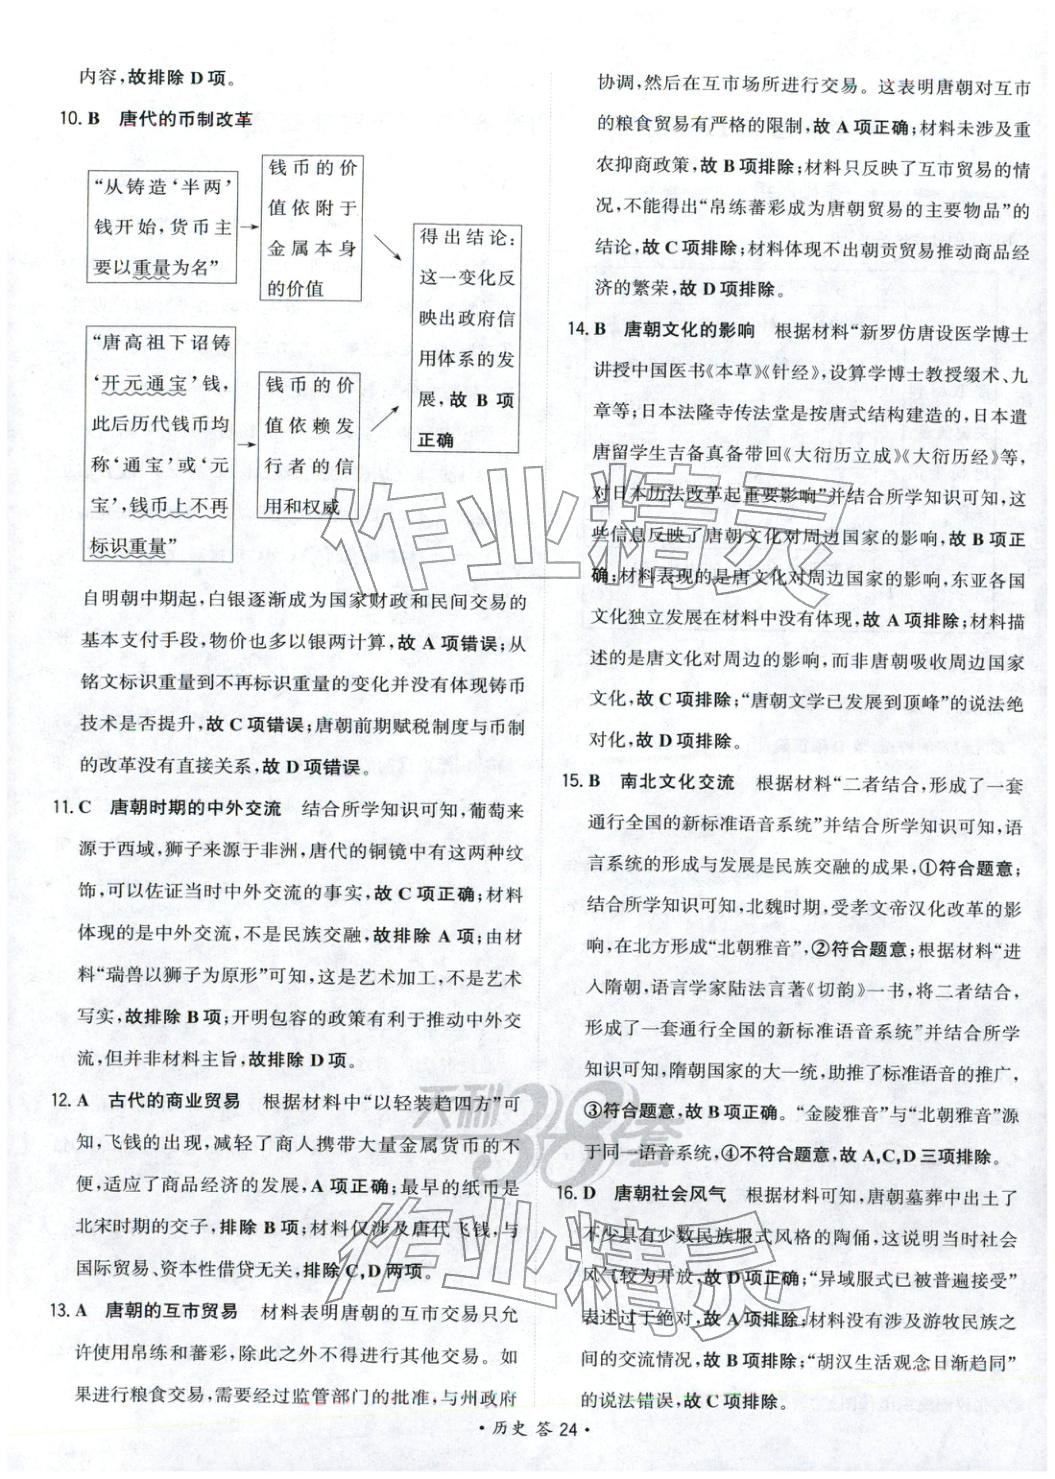 内容,故排除 D 项。
10. B 唐代的币制改革
“从铸造‘半两’
钱开始,货币主
要以重量为名”
钱币的价
值依附于
金属本身
的价值
“唐高祖下诏铸
‘开元通宝’钱,
此后历代钱币均
称‘通宝’或‘元
宝’,钱币上不再
标识重量”
钱币的价
值依赖发
行者的信
用和权威
得出结论:
这一变化反
映出政府信
用体系的发
展,故 B 项
正确
自明朝中期起,白银逐渐成为国家财政和民间交易的
基本支付手段,物价也多以银两计算,故 A 项错误;从
铭文标识重量到不再标识重量的变化并没有体现铸币
技术是否提升,故 C 项错误;唐朝前期赋税制度与币制
的改革没有直接关系,故 D 项错误。
11. C 唐朝时期的中外交流 结合所学知识可知,葡萄来
源于西域,狮子来源于非洲,唐代的铜镜中有这两种纹
饰,可以佐证当时中外交流的事实,故 C 项正确;材料
体现的是中外交流,不是民族交融,故排除 A 项;由材
料“瑞兽以狮子为原形”可知,这是艺术加工,不是艺术
写实,故排除 B 项;开明包容的政策有利于推动中外交
流,但并非材料主旨,故排除 D 项。
12. A 古代的商业贸易 根据材料中“以轻装趋四方”可
知,飞钱的出现,减轻了商人携带大量金属货币的不
便,适应了商品经济的发展,A 项正确;最早的纸币是
北宋时期的交子,排除 B 项;材料仅涉及唐代飞钱,与
国际贸易、资本性借贷无关,排除 C,D 两项。
13. A 唐朝的互市贸易 材料表明唐朝的互市交易只允
许使用帛练和蕃彩,除此之外不得进行其他交易。如
果进行粮食交易,需要经过监管部门的批准,与州政府
协调,然后在互市场所进行交易。这表明唐朝对互市
的粮食贸易有严格的限制,故 A 项正确;材料未涉及重
农抑商政策,故 B 项排除;材料只反映了互市贸易的情
况,不能得出“帛练蕃彩成为唐朝贸易的主要物品”的
结论,故 C 项排除;材料体现不出朝贡贸易推动商品经
济的繁荣,故 D 项排除。
14. B 唐朝文化的影响 根据材料“新罗仿唐设医学博士
讲授中国医书《本草》《针经》,设算学博士教授缀术、九
章等;日本法隆寺传法堂是按唐式结构建造的,日本遣
唐留学生吉备真备带回《大衍历立成》《大衍历经》等,
对日本历法改革起重要影响”并结合所学知识可知,这
些信息反映了唐朝文化对周边国家的影响,故 B 项正
确;材料表现的是唐文化对周边国家的影响,东亚各国
文化独立发展在材料中没有体现,故 A 项排除;材料描
述的是唐文化对周边的影响,而非唐朝吸收周边国家
文化,故 C 项排除;“唐朝文学已发展到顶峰”的说法绝
对化,故 D 项排除。
15. B 南北文化交流 根据材料“二者结合,形成了一套
通行全国的新标准语音系统”并结合所学知识可知,语
言系统的形成与发展是民族交融的成果,①符合题意;
结合所学知识可知,北魏时期,受孝文帝汉化改革的影
响,在北方形成“北朝雅音”,②符合题意;根据材料“进
入隋朝,语言学家陆法言著《切韵》一书,将二者结合,
形成了一套通行全国的新标准语音系统”并结合所学
知识可知,隋朝国家的大一统,助推了标准语音的推广,
③符合题意,故 B 项正确。“金陵雅音”与“北朝雅音”源
于同一语音系统,④不符合题意,故 A,C,D 三项排除。
16. D 唐朝社会风气 根据材料可知,唐朝墓葬中出土了
不少具有少数民族服式风格的陶俑,这说明当时社会
风气较为开放,故 D 项正确;“异域服式已被普遍接受”
表述过于绝对,故 A 项排除;材料没有涉及游牧民族之
间的交流情况,故 B 项排除;“胡汉生活观念日渐趋同”
的说法错误,故 C 项排除。
· 历史 答 24 ·
作业精灵
天利38套
作业精灵